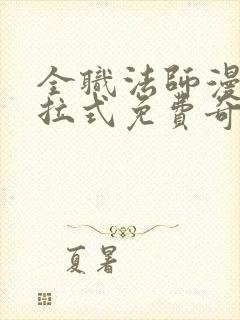 全職法師漫
拉式免費奇
夏暑